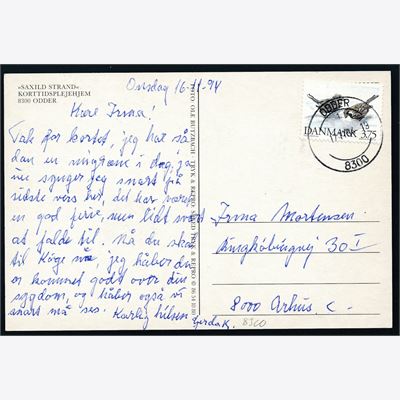 »SAXILD STRAND«
KORTTIDSPLEJEHJEM
8300 ODDER
Onsdag 16-11-94
Kære Irma!
Tak for kortet, jeg har så
dan en migræne i dag, ja
nu synger jeg snart på
sidste vers her, det har været
en god ferie, men lidt svært
at falde til. Nå du skal
til Køge nu, jeg håber du
er kommet godt over din
sygdom, og håber også vi
snart må ses. Kærlig hilsen
Gerda K.
FOTO: OLE BUTZBACH
ODDER
8300
DANMARK 3.75
Irma Mortensen
Ringkøbingvej 30 I
8000 Århus C.
8300